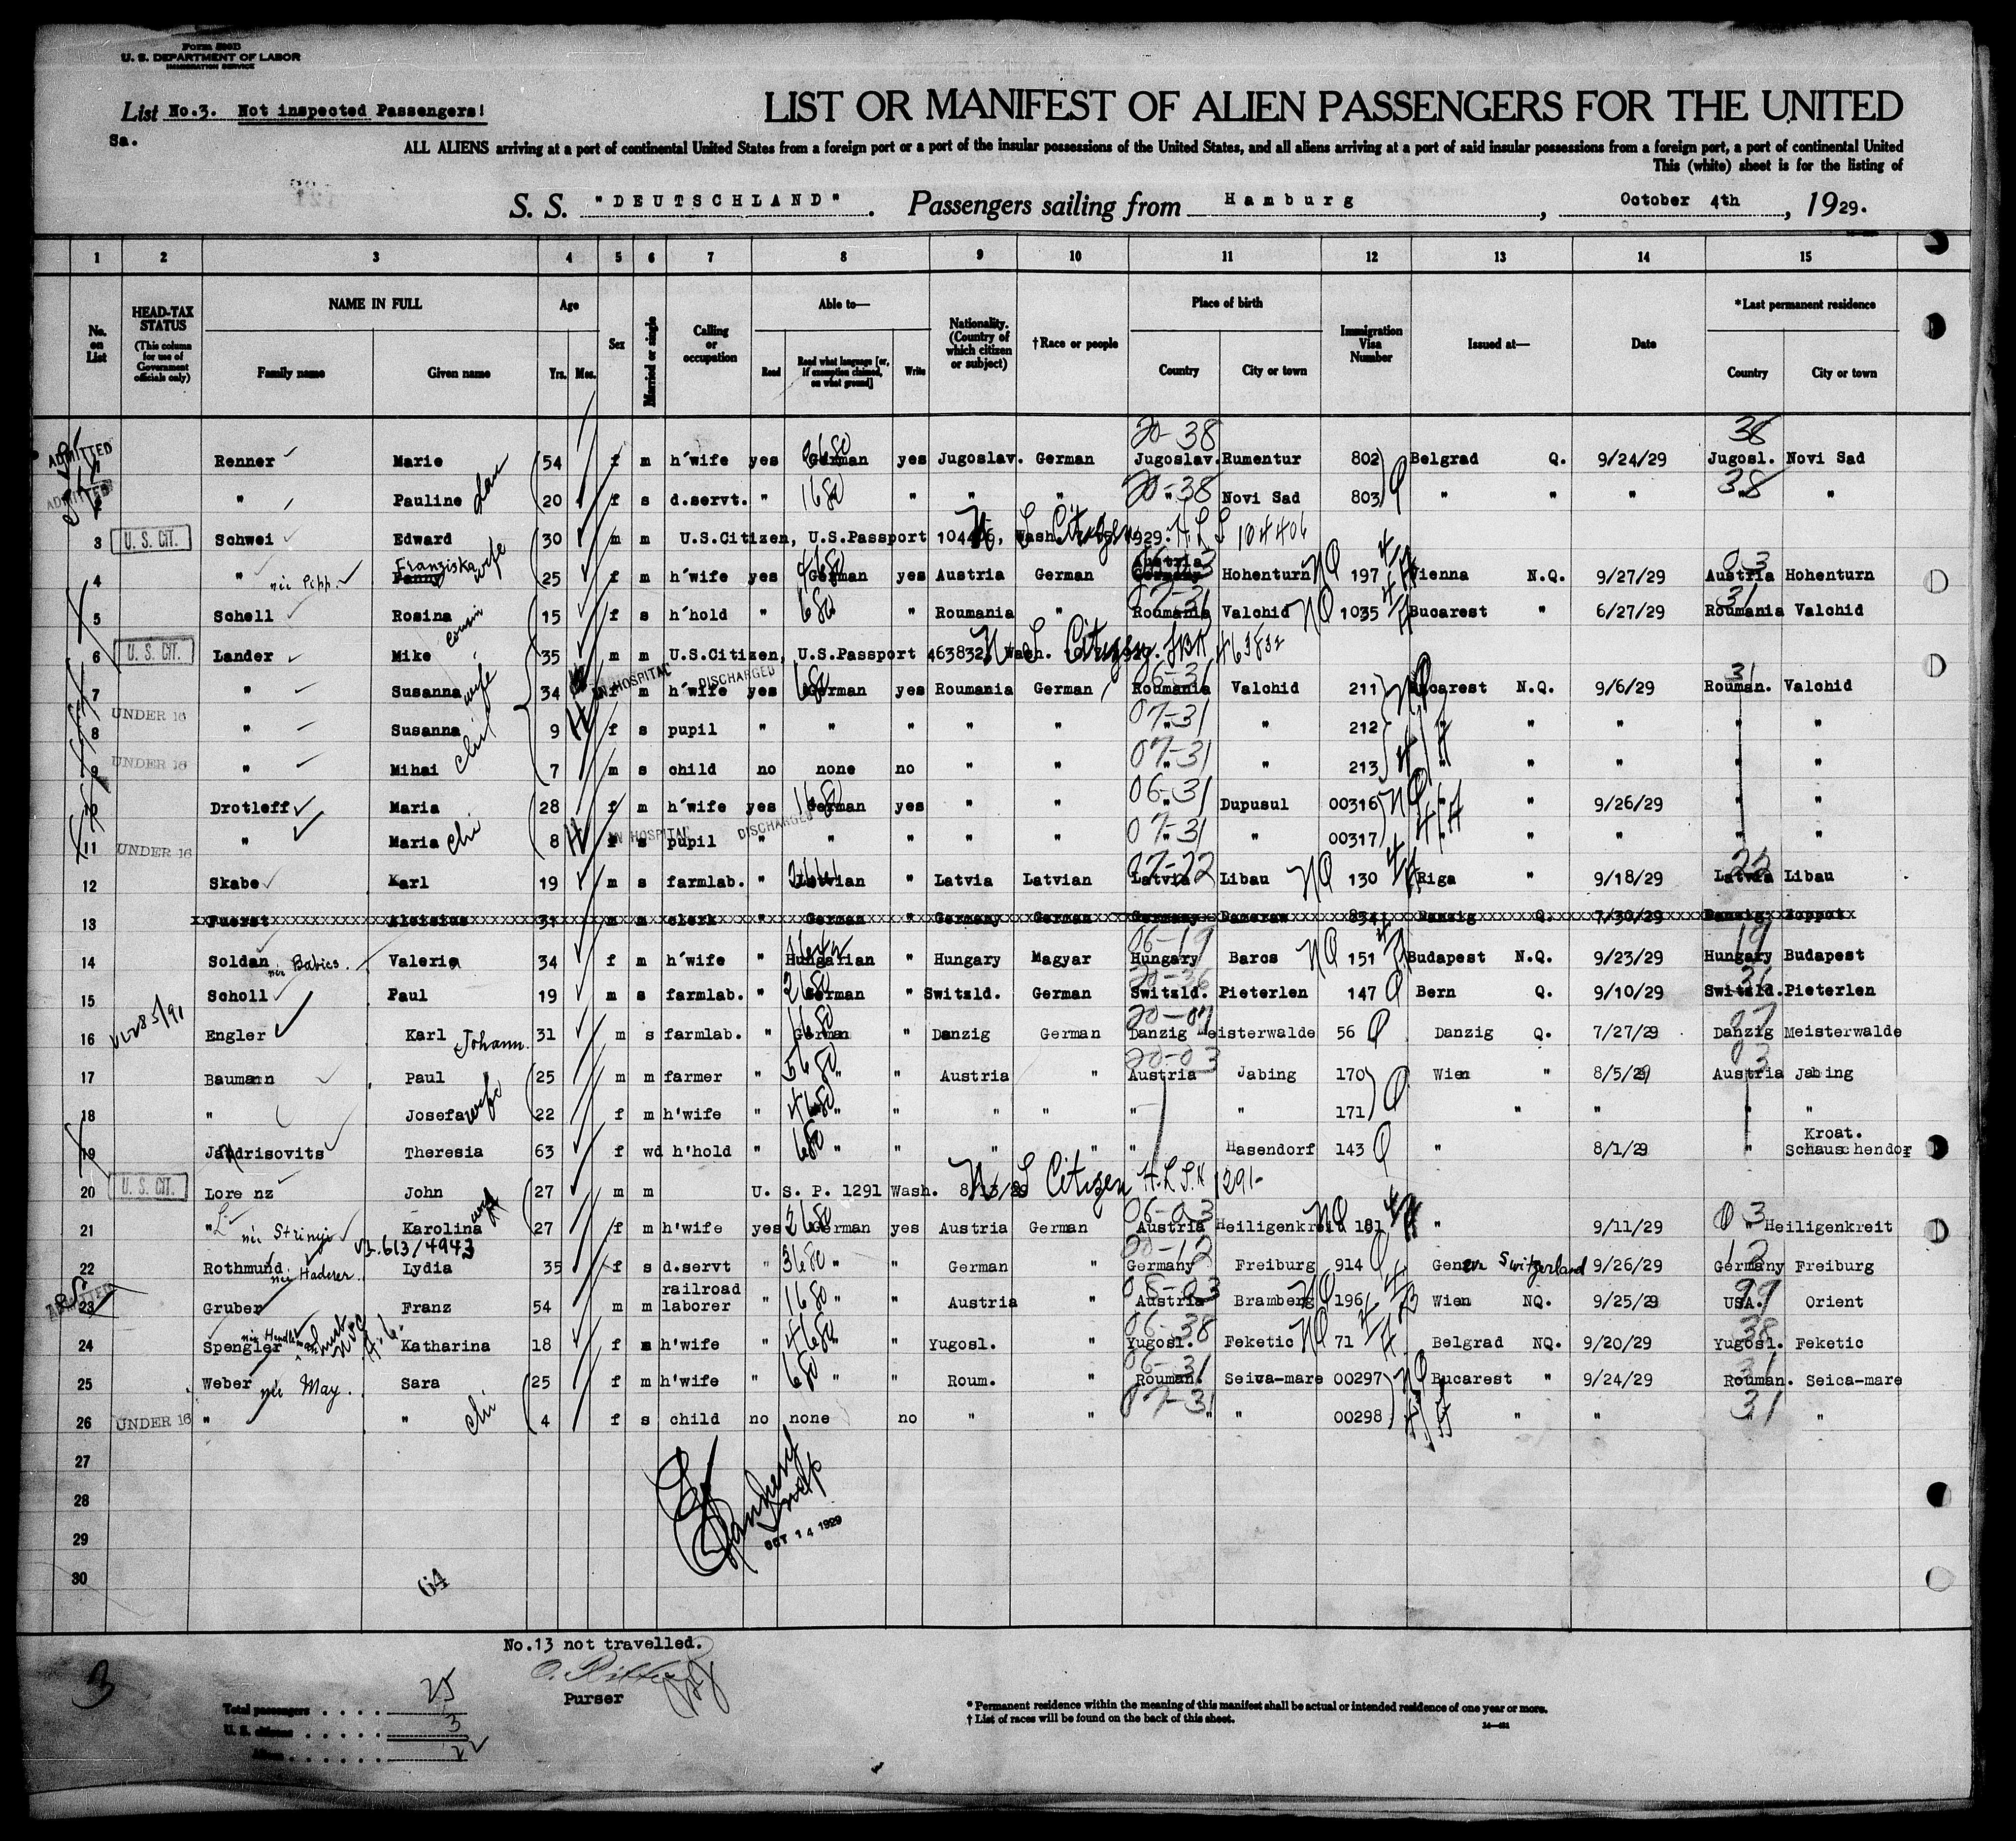 Form 500B
U. S. DEPARTMENT OF LABOR
IMMIGRATION SERVICE
List No.3. Not inspected Passengers!
Sa.
LIST OR MANIFEST OF ALIEN PASSENGERS FOR THE UNITED
ALL ALIENS arriving at a port of continental United States from a foreign port or a port of the insular possessions of the United States, and all aliens arriving at a port of said insular possessions from a foreign port, a port of continental United
This (white) sheet is for the listing of
S. S. "DEUTSCHLAND". Passengers sailing from Hamburg, October 4th, 1929.
1 2 3 4 5 6 7 8 9 10 11 12 13 14 15
No. on List
HEAD-TAX STATUS (This column for use of Government officials only)
NAME IN FULL Family name Given name
Age Yrs. Mos.
Sex
Married or single
Calling or occupation
Able to— Read Read what language [or, if exemption claimed, on what ground] Write
Nationality. (Country of which citizen or subject)
†Race or people
Place of birth Country City or town
Immigration Visa Number
Issued at—
Date
*Last permanent residence Country City or town
20-38 38
ADMITTED Renner Marie 54 f m h'wife yes German yes Jugoslav. German Jugoslav. Rumentur 802 Belgrad Q. 9/24/29 Jugosl. Novi Sad
ADMITTED 2 " Pauline dau 20 f s d.servt. " 1680 " " " 20-38 " Novi Sad 803 " " " 38 " "
3 U. S. CIT. Schwei Edward 30 m m U.S.Citizen, U.S.Passport 104406, Wash. 1929. U S Citizen H.L.S 104406
4 " née Pipp. Franziska Fanny wife 25 f m h'wife yes German yes Austria German Austria Germany Hohenturn NQ 197 Vienna N.Q. 9/27/29 03 Austria Hohenturn
5 Schell Rosina cousin 15 f s h'hold " 680 " Roumania " 07-31 Roumania Valchid NQ 1035 Bucarest " 6/27/29 31 Roumania Valchid
6 U. S. CIT. Lander Mike 35 m m U.S.Citizen, U.S.Passport 463832, Wash. U S Citizen. 463832
7 " Susanna wife 34 IN HOSPITAL DISCHARGED f m h'wife yes 680 German yes Roumania German 06-31 Roumania Valchid 211 NQ Bucarest N.Q. 9/6/29 31 Rouman. Valchid
8 UNDER 16 " Susanna 9 f s pupil " " " " " 07-31 " " 212 " " " " "
9 UNDER 16 " Mihai chil 7 m s child no none no " " 07-31 " " 213 " " " " "
10 Drotleff Maria 28 f m h'wife yes 1680 German yes " " 06-31 " Dupusul 00316 NQ " " 9/26/29 " "
11 UNDER 16 " Maria chi 8 IN HOSPITAL DISCHARGED f s pupil " " " " " 07-31 " " 00317 " " " " "
12 Skabe Karl 19 m s farmlab. " Latvian " Latvia Latvian 07-22 Latvia Libau NQ 130 Riga " 9/18/29 22 Latvia Libau
13 Fuerst Aloisius 31 m m clerk " German " Germany German Germany Dameraw 834 Danzig Q. 7/30/29 Danzig Zoppot
14 Soldan née Babics. Valeria 34 f m h'wife " Hungarian " Hungary Magyar 06-19 Hungary Barcs NQ 151 Budapest N.Q. 9/23/29 19 Hungary Budapest
15 Scholl Paul 19 m s farmlab. " 2680 German " Switzld. German 20-36 Switzld. Pieterlen 147 Q Bern Q. 9/10/29 Switzld. Pieterlen
16 Engler Karl Johann. 31 m s farmlab. " 1680 German " Danzig German 20-07 Danzig Meisterwalde 56 Q Danzig Q. 7/27/29 07 Danzig Meisterwalde
17 Baumann Paul 25 m m farmer " 5680 " " Austria " 20-03 Austria Jabing 170 Wien " 8/5/29 03 Austria Jabing
18 " Josefa wife 22 f m h'wife " 4680 " " " " " " 171 Q " " " "
19 Jandrisovits Theresia 63 f wd h'hold " 680 " " " " " Hasendorf 143 Q " 8/1/29 " Kroat. Schauschendorf
20 U. S. CIT. Lorenz John 27 m m U. S. P. 1291 Wash. 8/13/29 U S Citizen H.L.S.N 1291-
21 " née Strinyi Karolina wife 27 f m h'wife yes 2680 German yes Austria German 06-03 Austria Heiligenkreit NQ 181 " 9/11/29 03 " Heiligenkreit
613/4943
22 Rothmund née Haderer. Lydia 35 f s d.servt " 3680 " " German " 20-12 Germany Freiburg 914 Q Geneva Switzerland 9/26/29 12 Germany Freiburg
23 ADMITTED Gruber Franz 54 m m railroad laborer " 1680 " " Austria " 08-03 Austria Bramberg NQ 196 Wien NQ. 9/25/29 99 USA. Orient
24 Spengler Katharina 18 f m h'wife " 4680 " " Yugosl. " 06-38 Yugosl. Feketic NQ 71 Belgrad NQ. 9/20/29 38 Yugosl. Feketic
25 Weber née May. Sara 25 f m h'wife " 680 " " Roum. " 06-31 Rouman. Seica-mare 00297 NQ Bucarest " 9/24/29 31 Rouman. Seica-mare
26 UNDER 16 " " chi 4 f s child no none no " " 07-31 " " 00298 " " 31 " "
27
28
29
OCT 14 1929
30
64
No.13 not travelled.
Purser
3
Total passengers 25
U. S. citizens 3
Aliens 22
* Permanent residence within the meaning of this manifest shall be actual or intended residence of one year or more.
† List of races will be found on the back of this sheet.